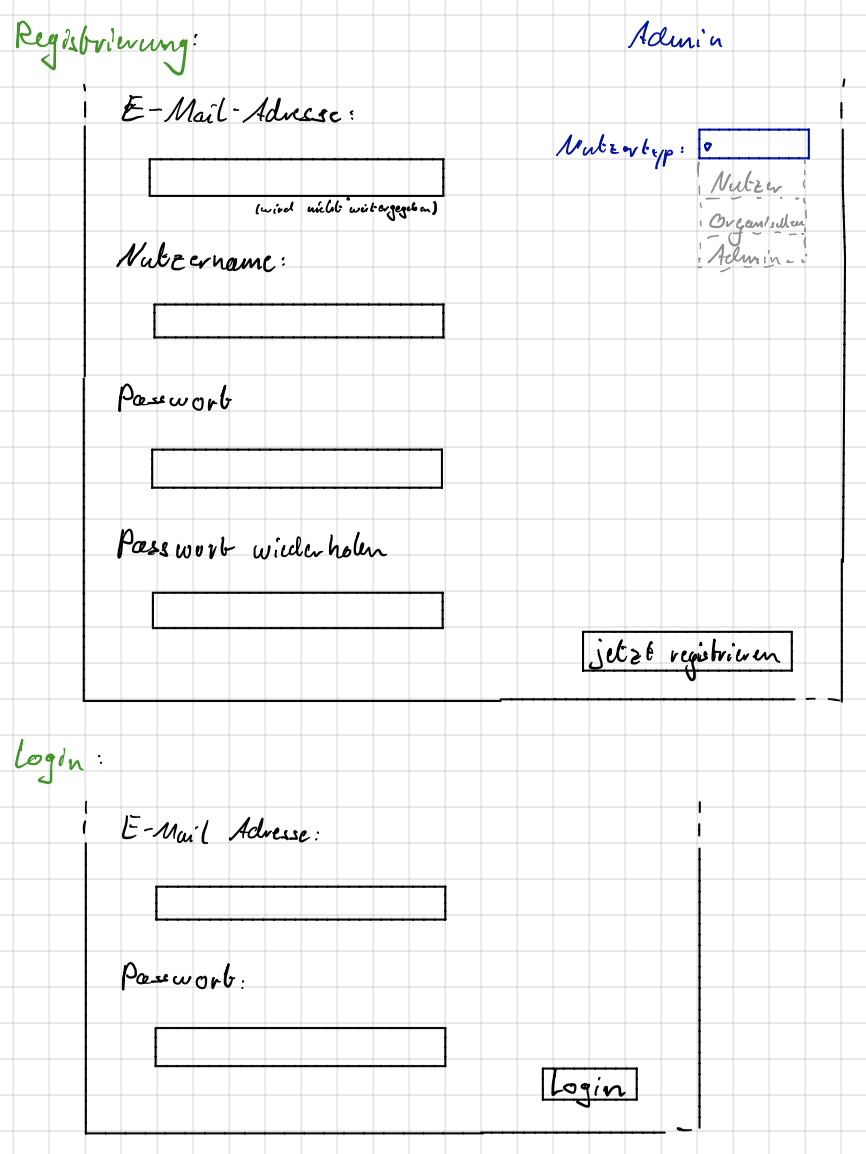 Registrierung:
Admin
E-Mail-Adresse:
Nutzertyp:
(wird nicht weitergegeben)
Nutzer
Organisation
Admin
Nutzername:
Passwort
Passwort wiederholen
jetzt registrieren
Login:
E-Mail Adresse:
Passwort:
Login